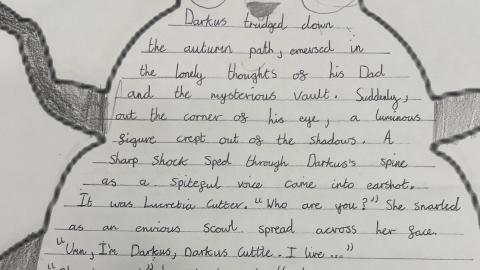 Darkus trudged down
the autumn path, emersed in
the lonely thoughts of his Dad
and the mysterious vault. Suddenly,
out the corner of his eye, a luminous
figure crept out of the shadows. A
sharp shock sped through Darkus's spine
as a spiteful voice came into earshot.
It was Lucretia Cutter. "Who are you?" She snarled
as an envious scowl spread across her face.
"Umm, I'm Darkus, Darkus Cuttle. I live..."